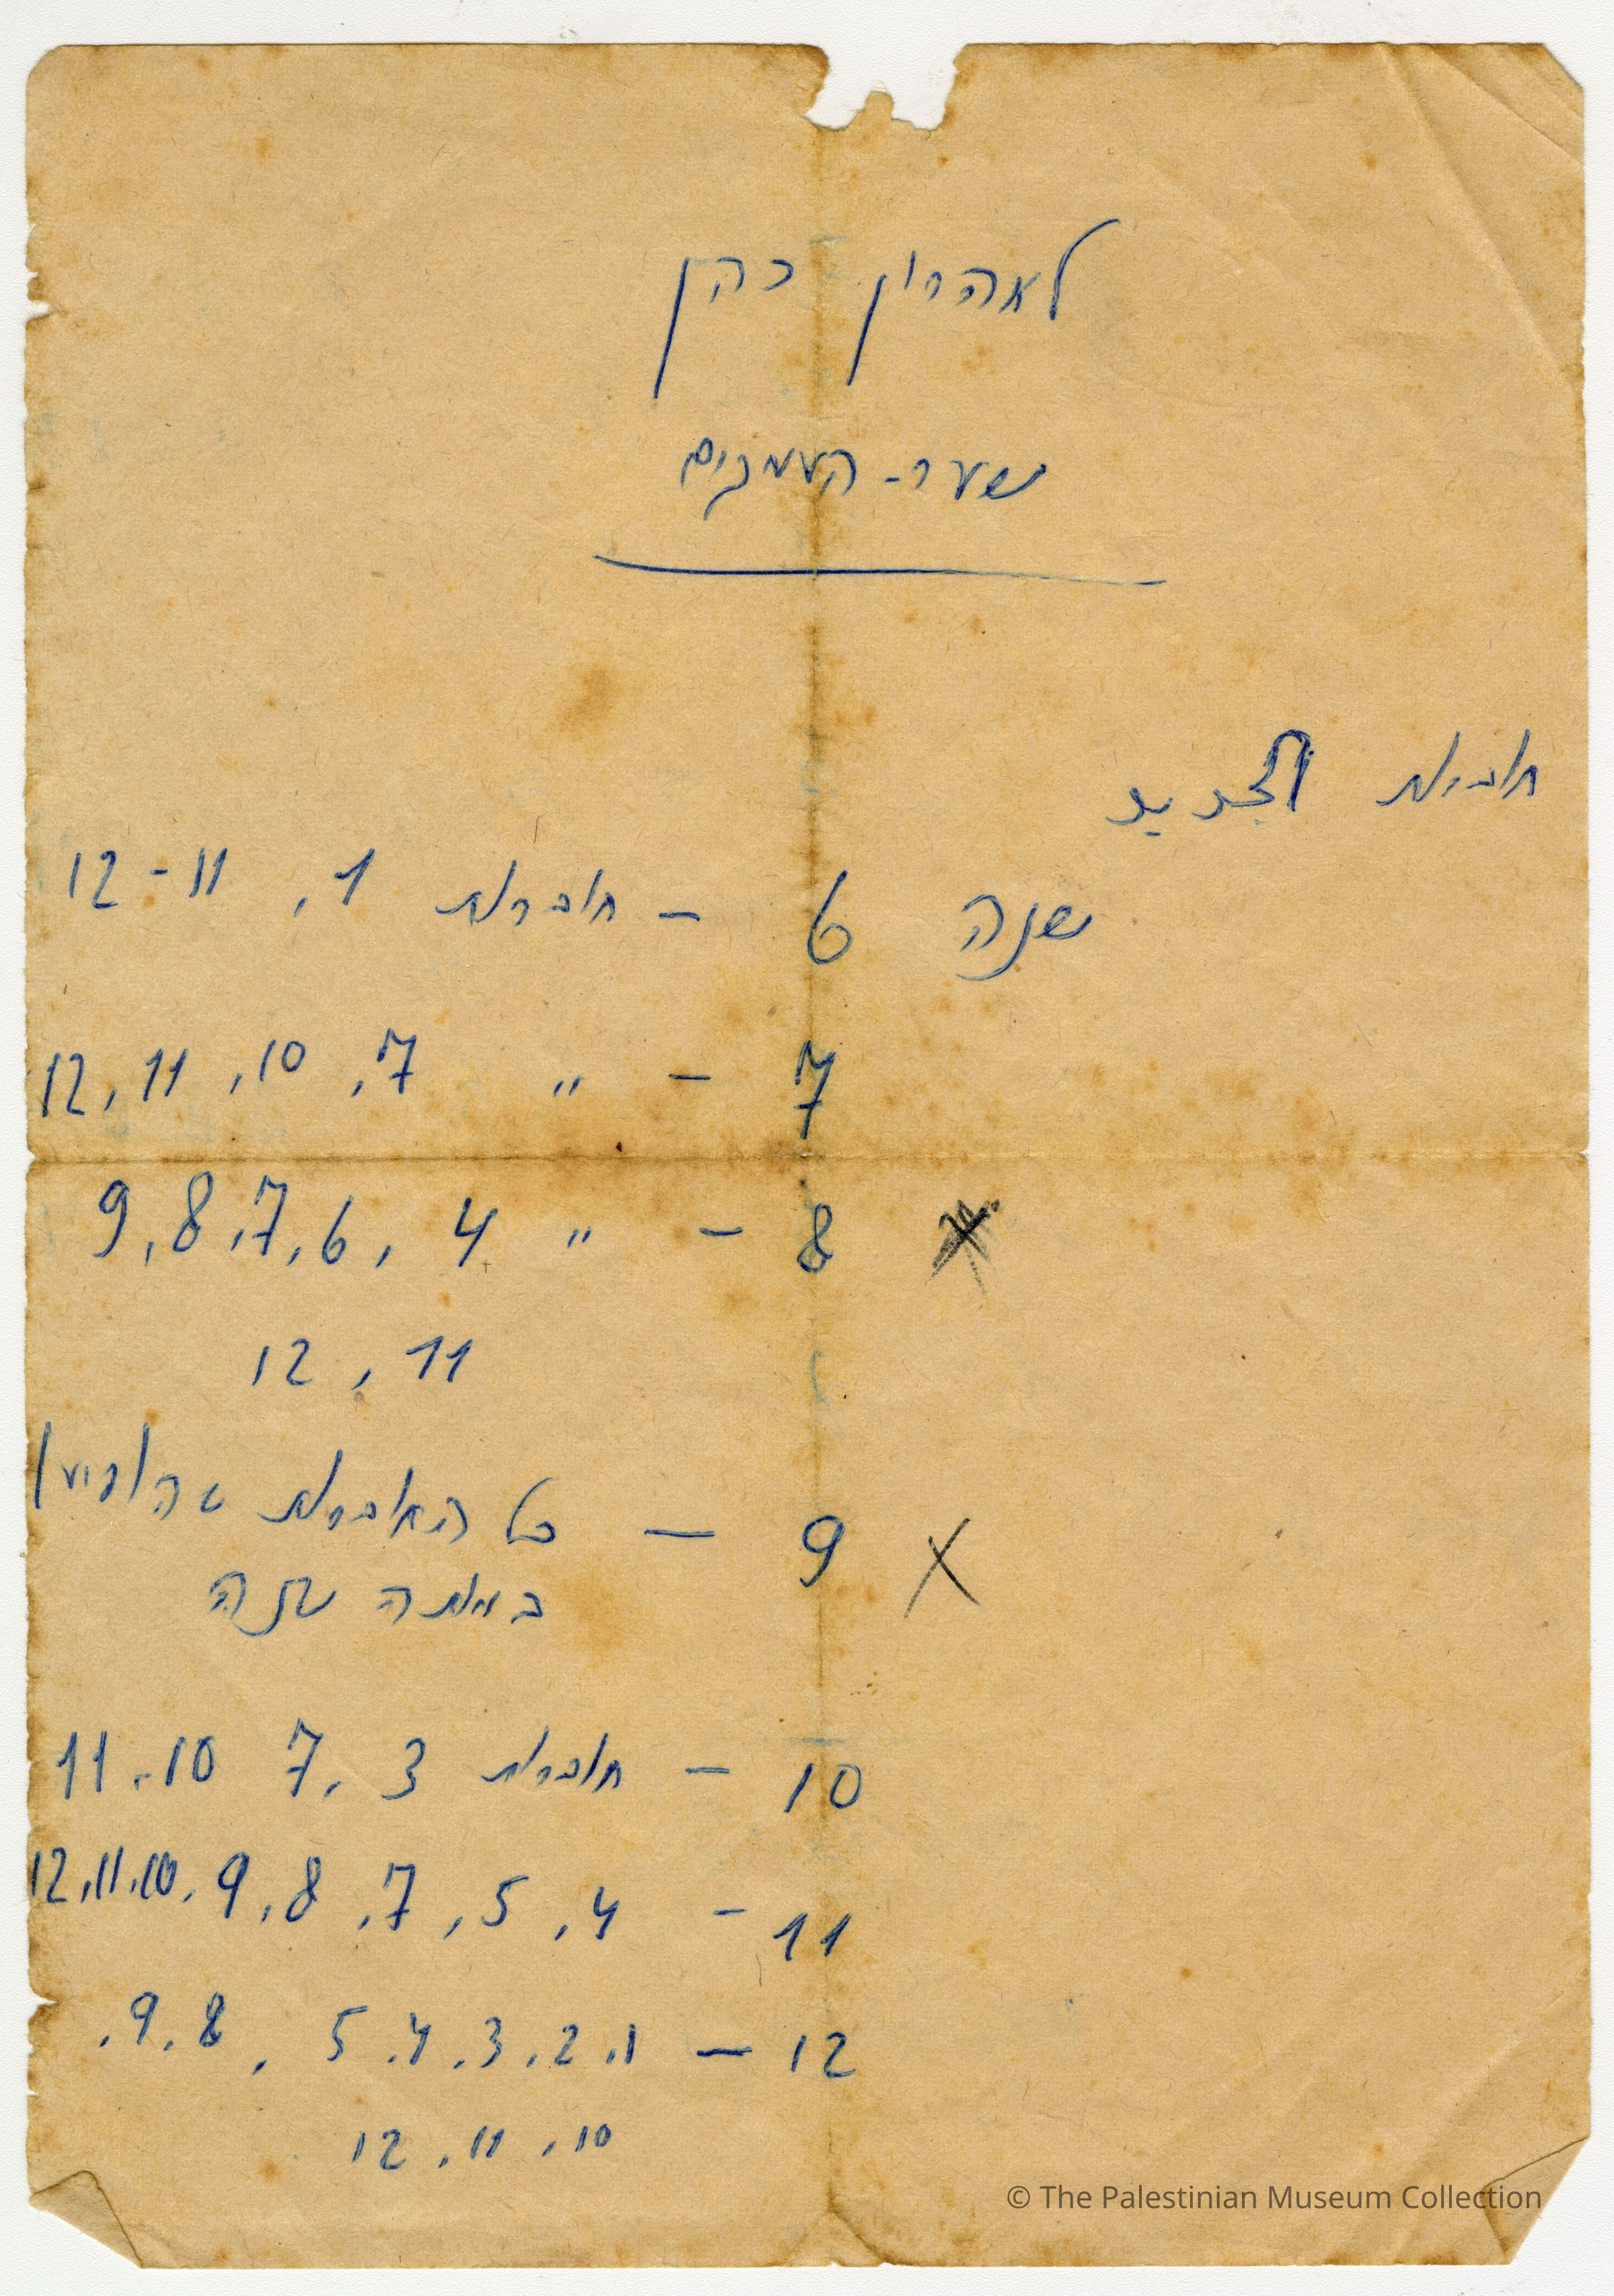 לאהרון כהן
שער-העמקים
חוברות الجديد
שנה 6 – חוברות 1, 11-12
7 – " 7, 10, 11, 12
8 – " 4, 6, 7, 8, 9
11, 12
9 – כל החוברות שהופיעו
באותה שנה
10 – חוברות 3, 7 10, 11
11 – 4, 5, 7, 8, 9, 10, 11, 12
12 – 1, 2, 3, 4, 5, 8, 9,
10, 11, 12
© The Palestinian Museum Collection